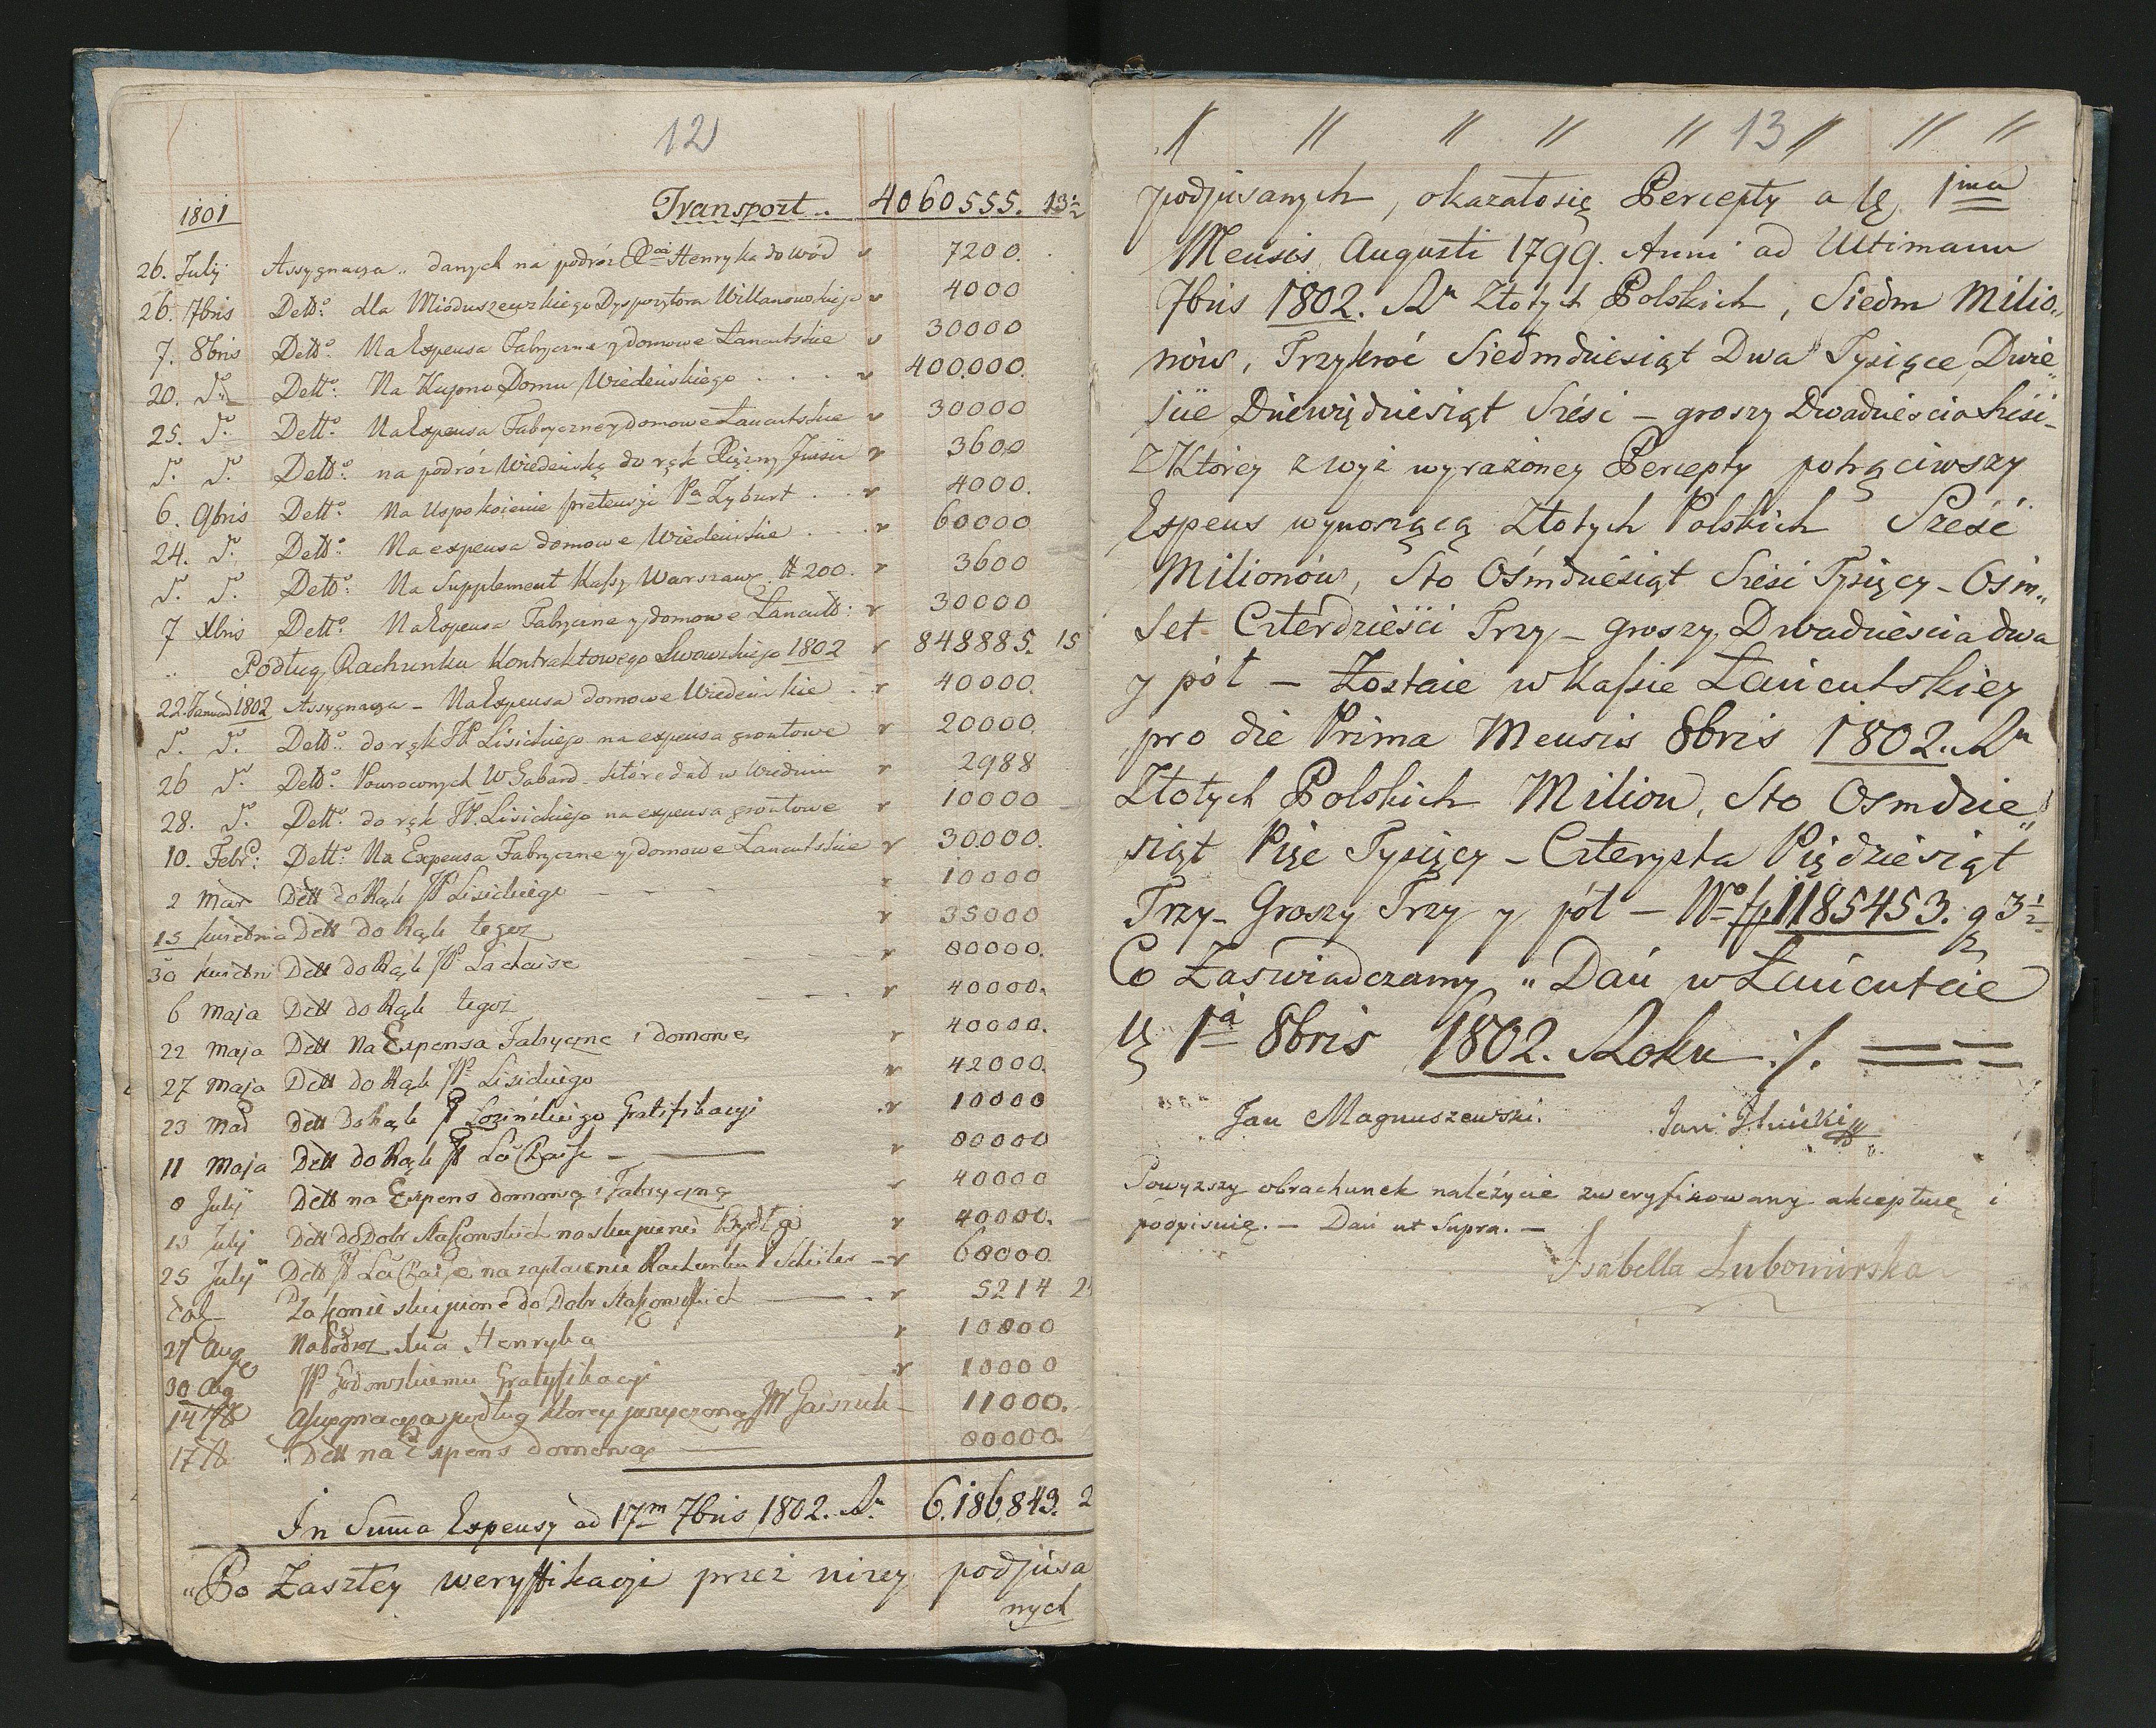 12
1801 Transport.. 4060555. 13½
26. July Assygnacya.. danych na podróż Henryka do wód v 7200.
26. 7bris Detto: dla Mioduszewskiego Dyspozytora Willanowskiego v 4000
7. 8bris Detto: Na Expensa Fabryczne y domowe Łancutskie v 30000
20. d: Detto: Na Kupno Domu Wiedeńskiego . . . . v 400.000.
25. d: Detto: Na Expensa Fabryczne y domowe Łancutskie v 30000
d: d: Detto: na podróż Wiedeńską do rąk Xiężny Jmści v 3600
6. 9bris Detto: Na Uspokoienie pretensyi Pa Zyburt . . v 4000.
24. d: Detto: Na expensa domowe Wiedeńskie . . . . v 60000
d: d: Detto: Na Supplement Kassy Warszaws. # 200. v 3600
7 Xbris Detto: Na Expensa Fabryczne y domowe Łancuts: v 30000
" Podług Rachunku Kontraktowego Lwowskiego 1802 v 848885. 15
22. Januar 1802 Assygnacya - Na Expensa domowe Wiedeńskie . v 40000.
d. d. Detto: do rąk JP. Lisickiego na expensa grontowe v 20000.
26 d. Detto: Powroconych W Gabard. które dał w Widniu v 2988
28. d. Detto: do rąk JP. Lisickiego na expensa grontowe v 10000
10. Febr: Detto: Na Expensa Fabryczne y domowe Łancutskie v 30.000.
2 Mar Dett do Rąk JP Lisickiego v 10000
15 kwietnia Dett do Rąk tegoz v 35000
30 kwietni Dett do Rąk JP. Lachaise v 80000.
6 Maja Dett do Rąk tegoz v 40000.
22 Maja Dett Na Expensa Fabryczne i domowe v 40000.
27 Maja Dett do Rąk JP Lisickiego v 42000.
23 Mad Dett Do Rąk P Lozińskiego Gratifikacyi v 10000
11 Maja Dett do Rąk JP La Chaise v 80000
8 July Dett na Expens domową i Fabryczną v 40000
13 July Dett do Dobr Staszowskich na skupienie Bydła v 40000.
25 July Dett JP La Chaise na zapłacenie Rachunku P v 60000
Za konie skupione do Dobr Staszowskich . v 5214 2
27 Aug Na Podroz Henryka v 10000
30 Aug JP Godowskiemu Gratyfikacyi v 10000
14 7b Assygnacya podług ktorey pozyczono JW 11000.
17 7b Dett na Expens domową 80000
In Summa Expensy ad 17m 7bris 1802. Ar. 6.186,843. 2
" Po Zaszłey weryffikacyi przez nizey podpisa
nych
" " " " " 13 " " "
podpisanych, okazało się Percepty a 1ma
Mensis Augusti 1799. Anni ad Ultimam
7bris 1802. Ar Złotych Polskich, Siedm Milio„
nów, Trzykroć Siedmdziesiąt Dwa Tysiące, Dwie„
ście Dziewiędziesiąt Sześć - groszy Dwadzieścia Sześć -
z Którey zwyż wyrażoney Percepty potrąciwszy
Expens wynoszącą Złotych Polskich Sześć
Milionów, Sto Ośmdziesiąt Sześć Tysięcy - Ośm„
set Czterdzieści Trzy - groszy Dwadzieścia dwa
y pół - Zostaie w Kassie Łańcutskiey
pro die Prima Mensis 8bris 1802. Ar
Złotych Polskich Milion, Sto Osmdzie„
siąt Pięc Tysięcy - Czterysta Piędziesiąt
Trzy - Groszy Trzy y pół - No fp 1185453. g 3½
Co Zaświadczamy " Dań w Łańcutcie
D 1a 8bris 1802. Roku ./.
Jan Magnuszewski. Jan Ilnicki
Powyzszy obrachunek należycie zweryfikowany akceptuię i
podpisuię. - Dań ut Supra. -
Isabella Lubomirska